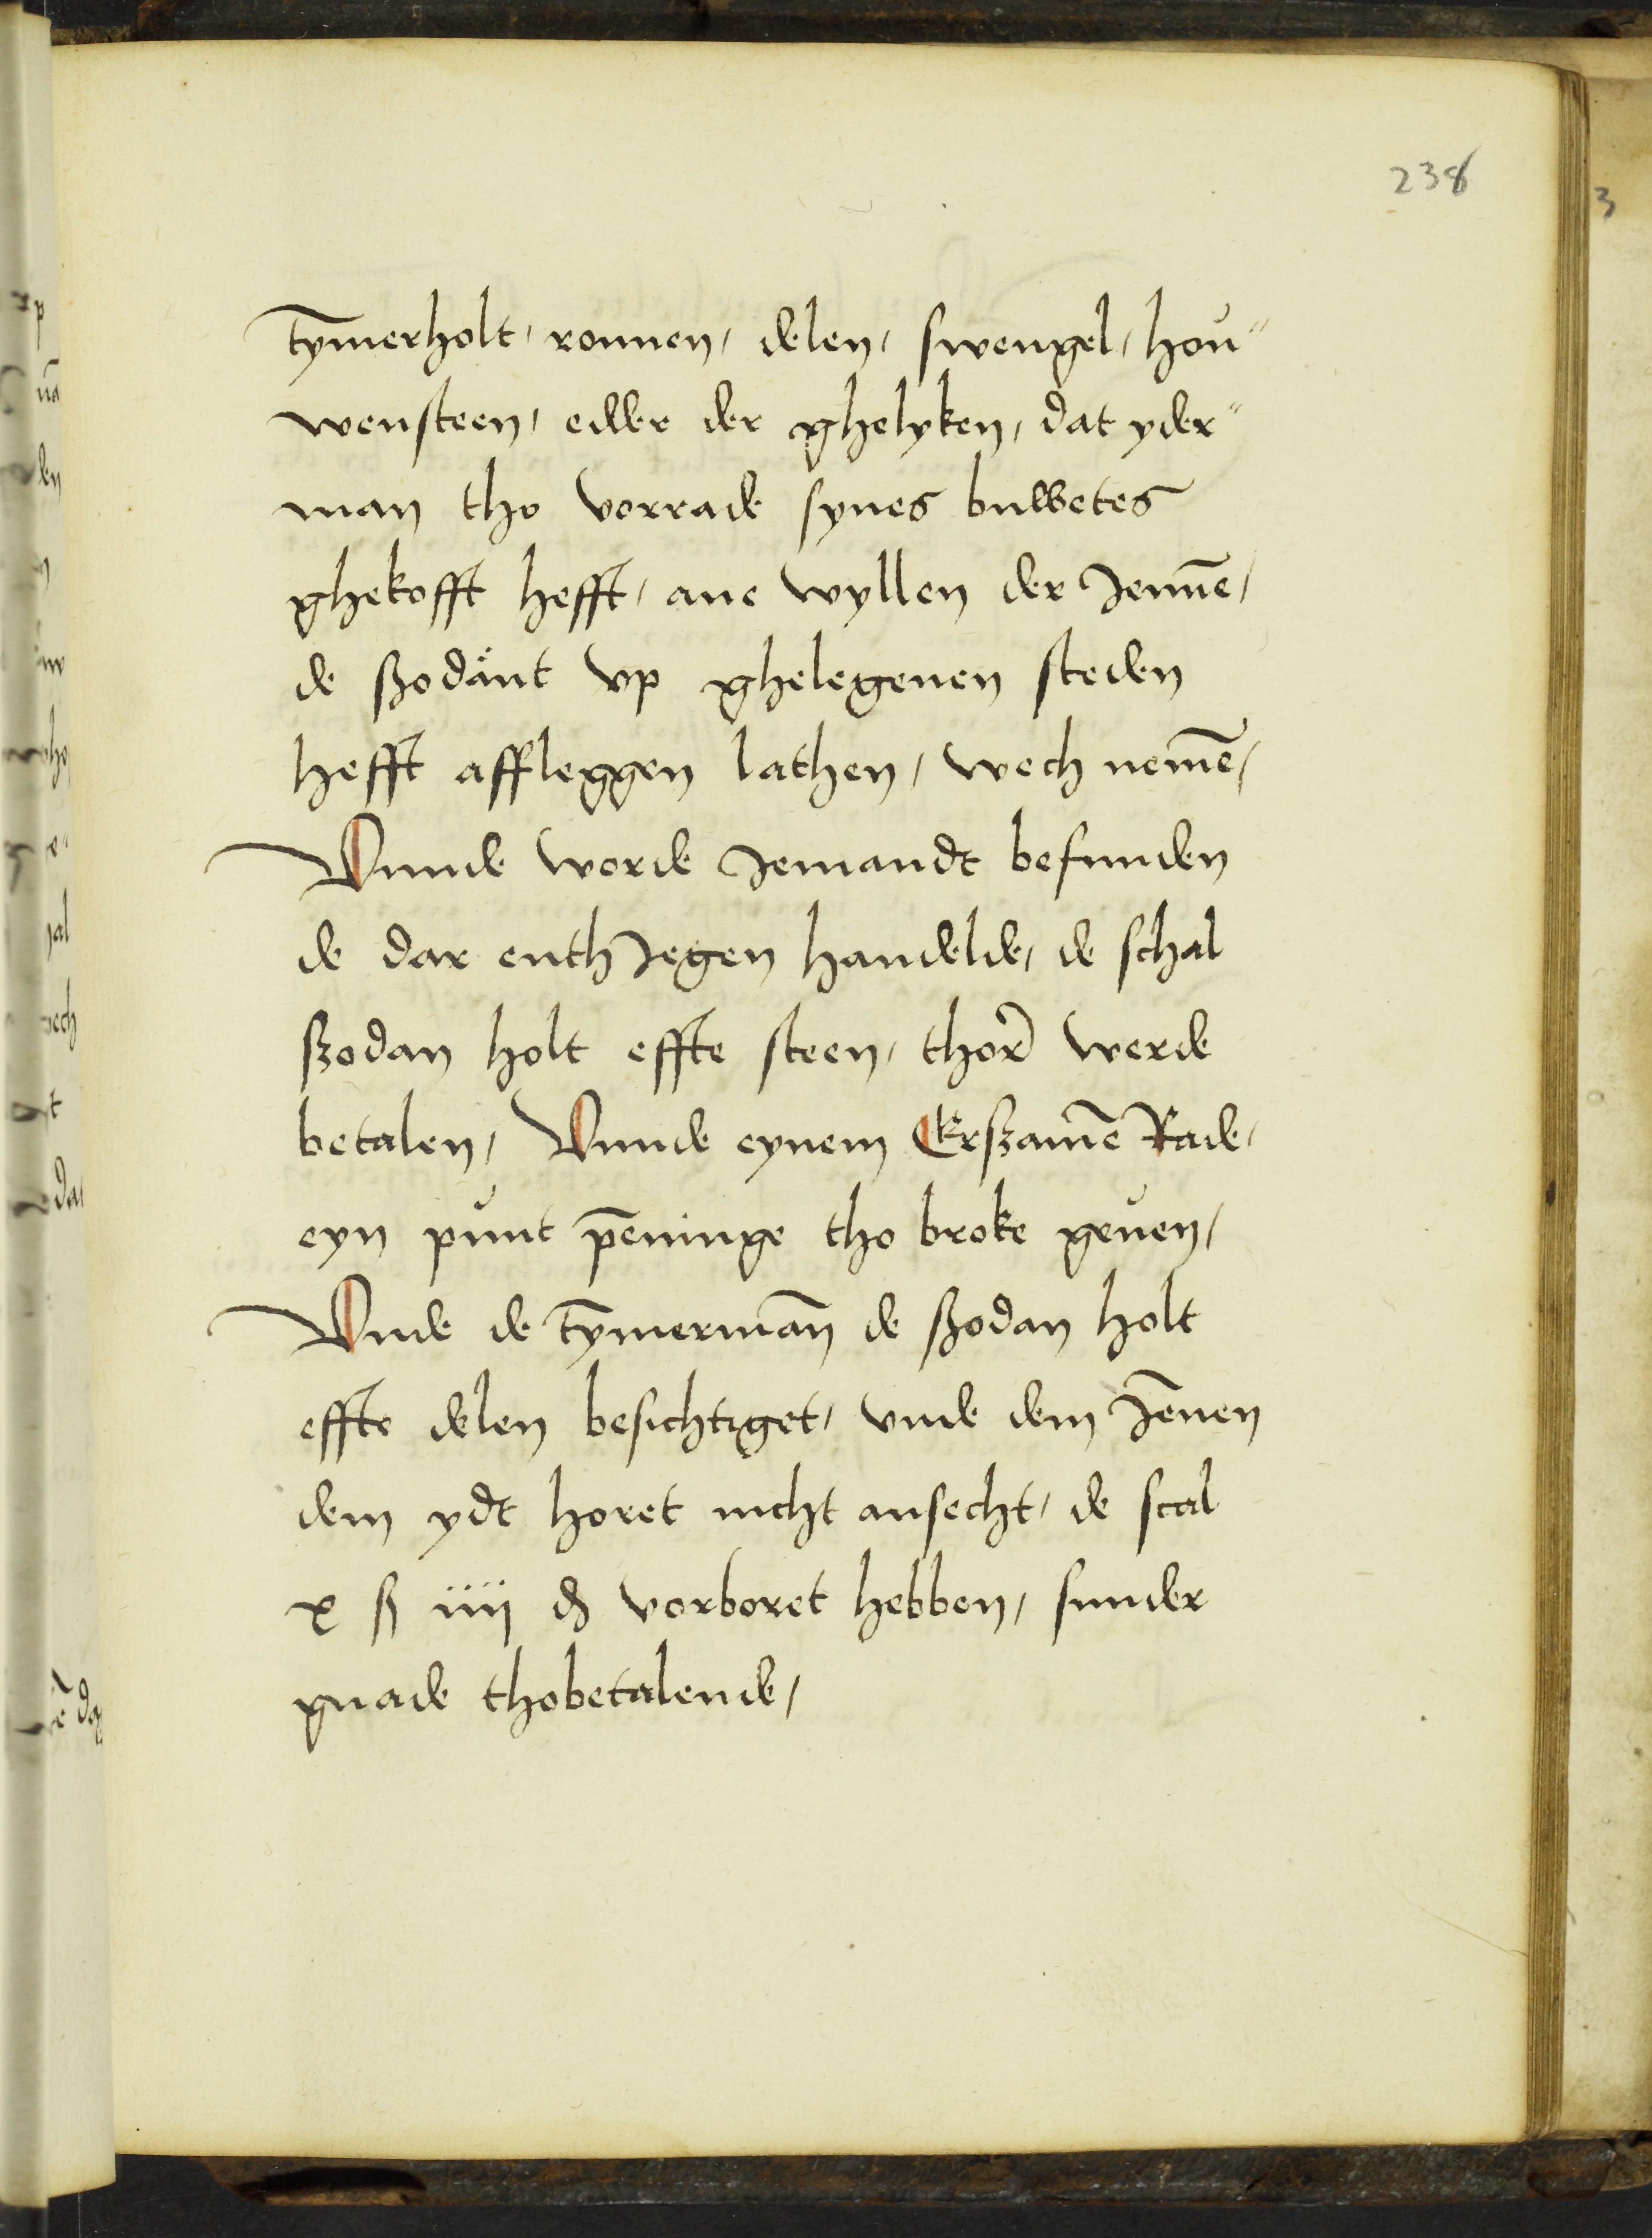 238
tȳmerholt, ronnen, delen, swengel, hou″
wensteen, edder der ghelyken, dat yder″
man tho vorrade synes buwetes
ghekofft hefft, ane wyllen der Jenne͞,
de ßodänt vp ghelegenen steden
hefft affleggen lathen, wech neme͞,
Vnnde worde Jemandt befunden
de dar enth Jegen handelde, de schal
ßodan holt effte steen, thor͛ werde
betalen, Vnnde eynem Erßame͞ Rade,
eyn punt pe͞ninge tho broke geuen,
Vnde de tȳmerma͞n de ßodan holt
effte delen besichtiget, vnde dem Je͞nen
dem ydt horet nicht ansecht, de scal
x ß iiij ₰ vorboret hebben, sunder
gnade thobetalende,